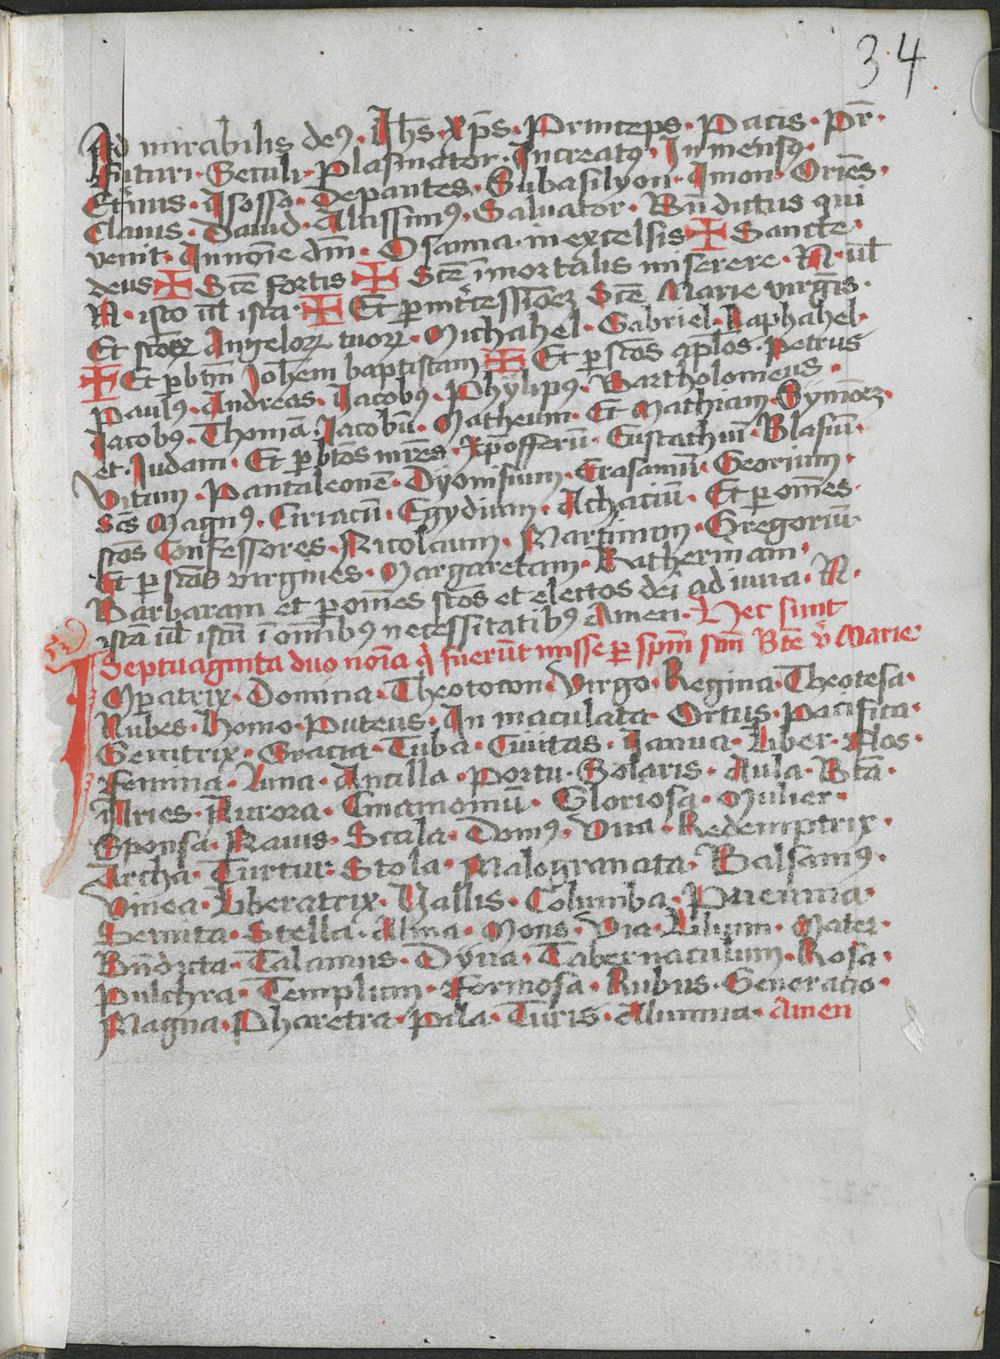 34
Ad mirabilis deꝰ · Jh̄s · xp̄s · Princeps · Pacis · Pr̄ ·
Futuri · Seculi · Plasmator · Increatꝰ · Inmensꝰ ·
Et̄nus · Ysosso · Depantes · Subasilyon · Imon · Oriēs ·
Clauis · Dauid · Altissimꝰ · Saluator · Bn̄dictus qui
venit · In noīe dn̄i · Osanna · in excelsis ✠ Sancte ·
deus ✠ Sc̄e fortis ✠ Sc̄e īmortalis miserere · N · ul̄
N · isto ul̄ ista · ✠ Et ꝑ int̄cessiōeꝫ Sc̄e Marie virgīs ·
Et sc̄oꝝ Angeloꝝ tuoꝝ · Michahel · Gabriel · Raphahel ·
✠ Et ꝑ bt̄m Johem baptistam ✠ Et ꝑ sc̄os apl̄os · Petrus
Paulꝰ · Andreas · Jacobꝰ · Phylipꝰ · Bartholomeus ·
Jacobꝰ · Thomā · Jacobū · Matheum · Et Mathiam · Symōeꝫ ·
et · Judam · Et ꝑ bt̄os mr̄es · Xpofferū · Eustachiū · Blasiū ·
Vitum · Pantaleonē · Dyonisium · Erasamū · Georium ·
Sc̄s Magnꝰ · Ciriacū · Egydium · Achaciū · Et ꝑ om̄es
sc̄os Confessores · Nicolaum · Martinum · Gregoriū
Et ꝑ sc̄as virgines · Margaretam · Katherinam ·
Barbaram et ꝑ om̄es sc̄os et electos dei ad iuua · N ·
ista ul̄ istū ī om̄ibꝰ necessitatibꝰ Amen · Hec sunt
Septuaginta duo noīa q̄ fuerūt misse ꝑ spm̄ sc̄m Bt̄e v̄ Marie
Imꝑatrix · Domina · Theotocon · Virgo · Regina · Theotesa ·
Nubes · Homo · Puteus · In maculata · Ortus · Pacifica ·
Genitrix · Gracia · Tuba · Ciuitas · Ianua · Liber · Flos ·
Femina · Luna · Ancilla · Portu · Solaris · Aula · Bt̄a ·
Aries · Aurora · Cinamomū · Gloriosa · Mulier ·
Sponsa · Nauis · Scala · Domꝰ · Vna · Redemptrix ·
Archa · Turtur · Stola · Malogranata · Balsamꝰ ·
Vinea · Liberatrix · Vallis · Columba · Pneuma ·
Semita · Stella · Alma · Mons · Via · Lilium · Mater ·
Bn̄dicta · Talamus · Dyna · Tabernaculum · Rosa ·
Pulchra · Templum · Formosa · Rubus · Generatio ·
Magna · Pharetra · Pila · Turis · Alumna · Amen